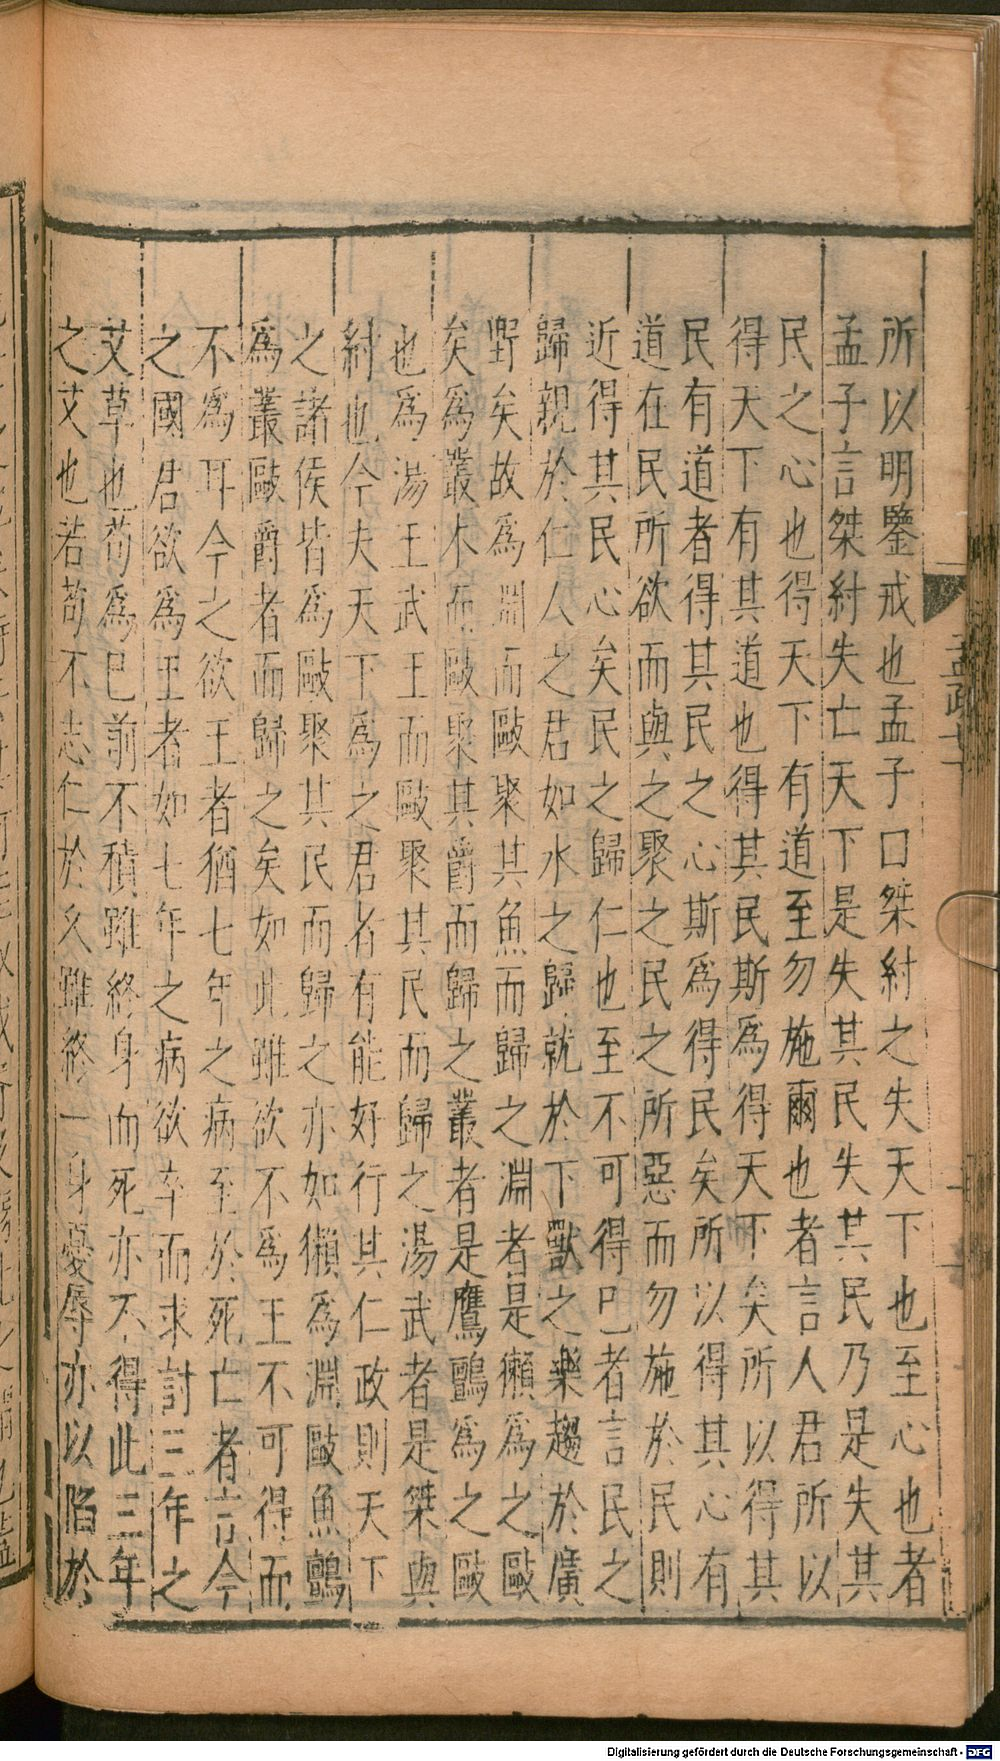 所以明鑒戒也孟子曰桀紂之失天下也至心也者
孟子言桀紂失亡天下是失其民失其民乃是失其
民之心也得天下有道至勿施爾也者言人君所以
得天下有其道也得其民斯爲得天下矣所以得其
民有道者得其民之心斯爲得民矣所以得其心有
道在民所欲而與之聚之民之所惡而勿施於民則
近得其民心矣民之歸仁也至不可得已者言民之
歸親於仁人之君如水之歸就於下獸之樂趨於廣
野矣故爲淵而敺聚其魚而歸之淵者是獺爲之敺
矣爲叢木而敺聚其爵而歸之叢者是鷹鸇爲之敺
也爲湯王武王而敺聚其民而歸之湯武者是桀與
紂也今夫天下爲之君者有能好行其仁政則天下
之諸侯皆爲敺聚其民而歸之亦如獺爲淵敺魚鸇
爲叢敺爵者而歸之矣如此雖欲不爲王不可得而
不爲耳今之欲王者猶七年之病至於死亡者言今
之國君欲爲王者如七年之病欲卒而求討三年之
艾草也苟爲巳前不積雖終身而死亦不得此三年
之艾也若苟不志仁於久雖終一身憂辱亦以陷於
孟疏七
Digitalisierung gefördert durch die Deutsche Forschungsgemeinschaft - DFG